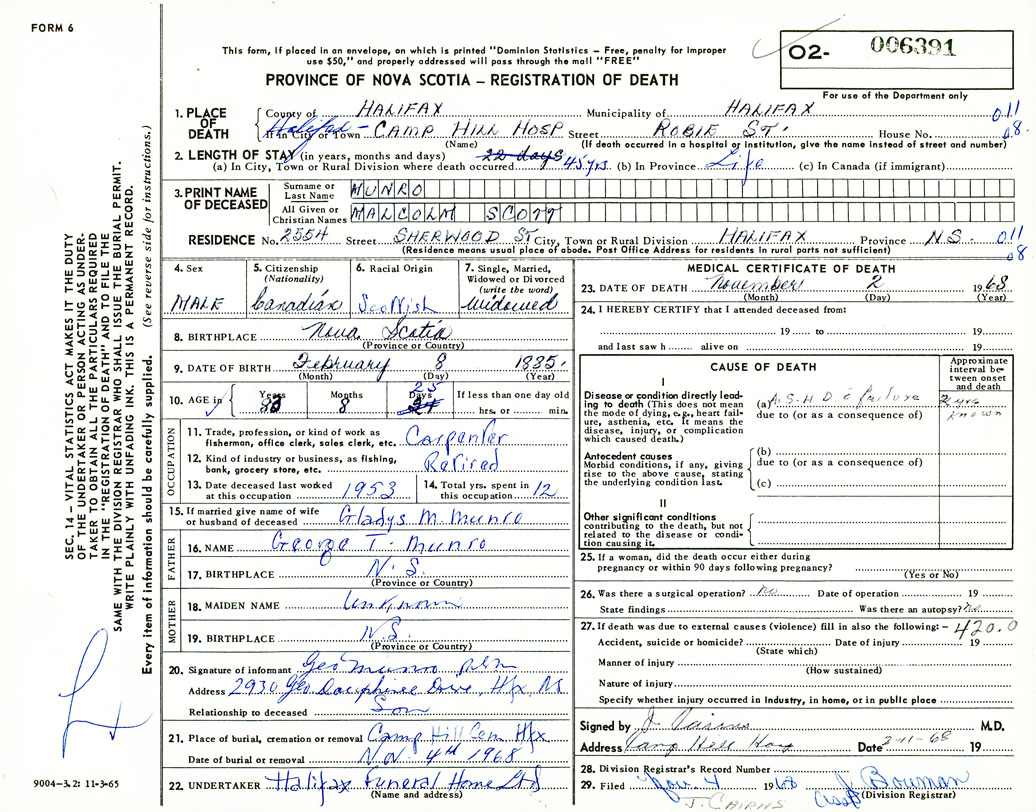 FORM 6
This form, if placed in an envelope, on which is printed "Dominion Statistics – Free, penalty for improper
use $50," and properly addressed will pass through the mail "FREE"
PROVINCE OF NOVA SCOTIA – REGISTRATION OF DEATH
O2- 006391
For use of the Department only
SEC. 14 – VITAL STATISTICS ACT MAKES IT THE DUTY
OF THE UNDERTAKER OR PERSON ACTING AS UNDER-
TAKER TO OBTAIN ALL THE PARTICULARS REQUIRED
IN THE "REGISTRATION OF DEATH" AND TO FILE THE
SAME WITH THE DIVISION REGISTRAR WHO SHALL ISSUE THE BURIAL PERMIT.
WRITE PLAINLY WITH UNFADING INK. THIS IS A PERMANENT RECORD.
Every item of information should be carefully supplied. (See reverse side for instructions.)
1. PLACE OF DEATH County of HALIFAX Municipality of HALIFAX 011
If in City or Town Halifax – CAMP HILL HOSP Street ROBIE ST. House No. 08.
(Name) (If death occurred in a hospital or institution, give the name instead of street and number)
2. LENGTH OF STAY (in years, months and days) 22 days
(a) In City, Town or Rural Division where death occurred 45 yrs. (b) In Province Life (c) In Canada (if immigrant)
3. PRINT NAME OF DECEASED Surname or Last Name MUNRO
All Given or Christian Names MALCOLM SCOTT
RESIDENCE No. 2554 Street SHERWOOD ST City, Town or Rural Division HALIFAX Province N.S. 011
(Residence means usual place of abode. Post Office Address for residents in rural parts not sufficient) 08
4. Sex 5. Citizenship (Nationality) 6. Racial Origin 7. Single, Married, Widowed or Divorced (write the word)
MALE Canadian Scottish Widowed
8. BIRTHPLACE Nova Scotia
(Province or Country)
9. DATE OF BIRTH February 8 1885.
(Month) (Day) (Year)
10. AGE in Years 83 Months 8 Days 25 If less than one day old
hrs. or min.
OCCUPATION
11. Trade, profession, or kind of work as fisherman, office clerk, sales clerk, etc. Carpenter
12. Kind of industry or business, as fishing, bank, grocery store, etc. Retired
13. Date deceased last worked at this occupation 1953 14. Total yrs. spent in this occupation 12
15. If married give name of wife or husband of deceased Gladys M. Munro
FATHER
16. NAME George T. Munro
17. BIRTHPLACE N.S.
(Province or Country)
MOTHER
18. MAIDEN NAME Unknown
19. BIRTHPLACE N.S.
(Province or Country)
20. Signature of informant Geo Munro
Address 2930 Geo Dauphinee Ave, Hfx NS
Relationship to deceased Son
21. Place of burial, cremation or removal Camp Hill Cem Hfx
Date of burial or removal Nov. 4th 1968
22. UNDERTAKER Halifax Funeral Home Ltd
(Name and address)
9004-3.2: 11-3-65
MEDICAL CERTIFICATE OF DEATH
23. DATE OF DEATH November 2 1968
(Month) (Day) (Year)
24. I HEREBY CERTIFY that I attended deceased from:
19 to 19
and last saw h alive on 19
CAUSE OF DEATH
Approximate interval between onset and death
I
Disease or condition directly leading to death (This does not mean the mode of dying, e.g., heart failure, asthenia, etc. It means the disease, injury, or complication which caused death.)
(a) A.S.H.D c failure 2 yrs
due to (or as a consequence of) known
Antecedent causes
Morbid conditions, if any, giving rise to the above cause, stating the underlying condition last.
(b)
due to (or as a consequence of)
(c)
II
Other significant conditions
contributing to the death, but not related to the disease or condition causing it.
25. If a woman, did the death occur either during
pregnancy or within 90 days following pregnancy?
(Yes or No)
26. Was there a surgical operation? No Date of operation 19
State findings Was there an autopsy? No
27. If death was due to external causes (violence) fill in also the following: – 420.0
Accident, suicide or homicide? Date of injury 19
(State which)
Manner of injury
(How sustained)
Nature of injury
Specify whether injury occurred in Industry, in home, or in public place
Signed by J. Cairns M.D.
Address Camp Hill Hosp Date 2-11-68 19
28. Division Registrar's Record Number
29. Filed Nov. 4 1968 J Bowman
(Division Registrar)
J. CAIRNS